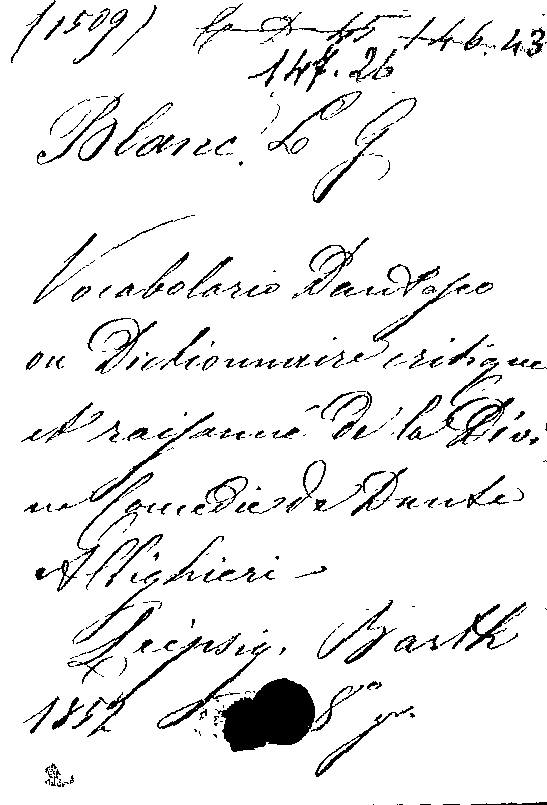 (1509) 45 146.23
147.26
Blanc. L G
Vocabolario Dantesco
ou Dictionnaire critique
et raisonné de la Divi
ne Comédie de Dante
Allighieri
Leipsig. Barth
1852 8º gr.